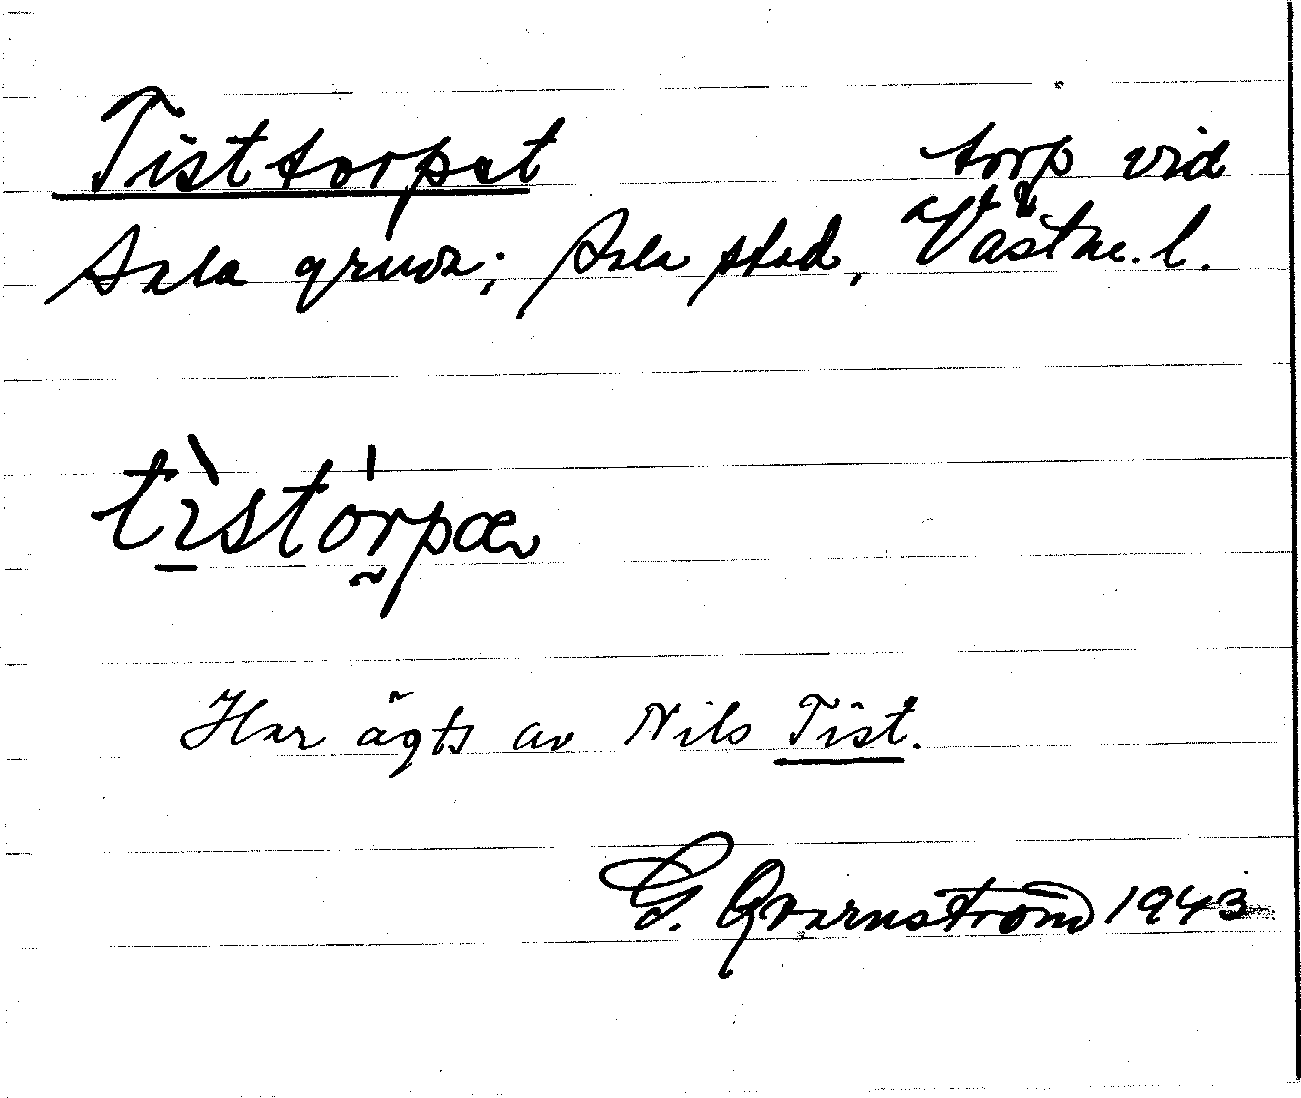 Tisttorpet torp vid
Sala gruva; Sala stad, Västm. l.
tìstórpæ
Har ägts av Nils Tist.
G. Qvarnström 1943